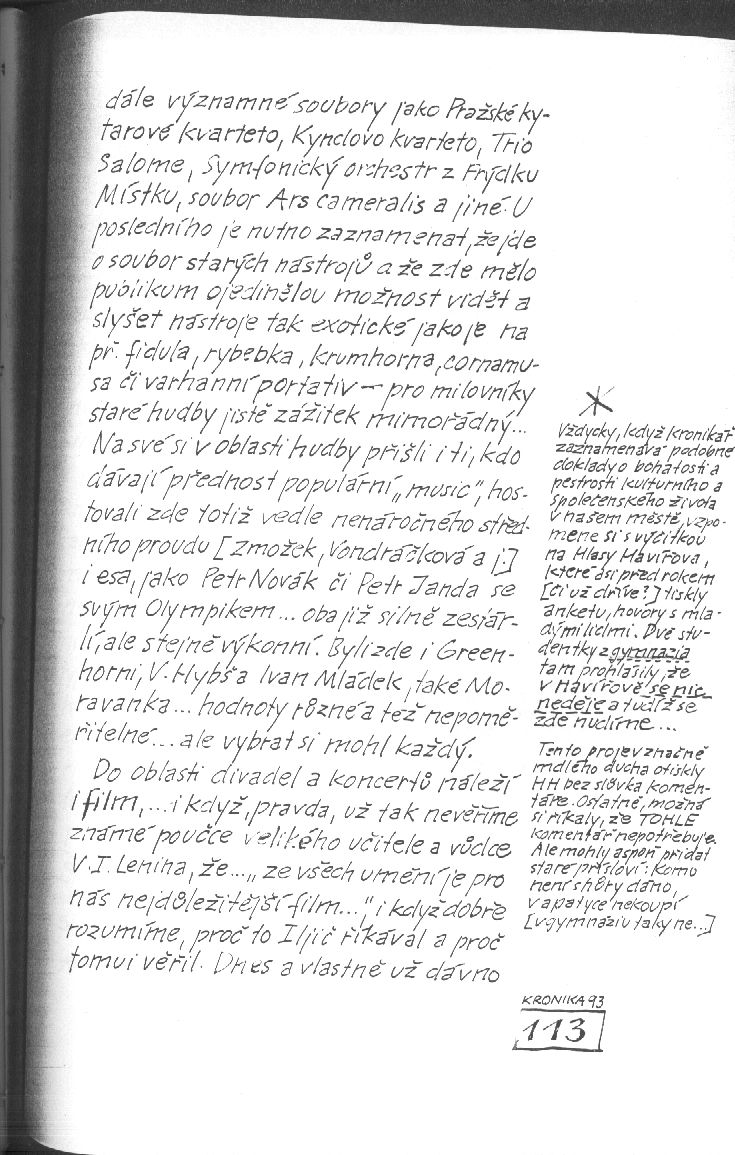 dále významné soubory jako Pražské ky-
tarové kvarteto, Kynclovo kvarteto, Trio
Salome, Symfonický orchestr z Frýdku
Místku, soubor Ars cameralis a jiné. U
posledního je nutno zaznamenat, že jde
o soubor starých nástrojů a že zde mělo
publikum ojedinělou možnost vidět a
slyšet nástroje tak exotické jako je na
př. fidula, rybebka, krumhorna, cornamu-
sa či varhanní portativ – pro milovníky
staré hudby jistě zážitek mimořádný...
Na své si v oblasti hudby přišli i ti, kdo
dávají přednost populární „music", hos-
tovali zde totiž vedle nenáročného střed-
ního proudu [Zmožek, Vondráčková a j.]
i esa, jako Petr Novák či Petr Janda se
svým Olympikem... oba již silně zestár-
lí, ale stejně výkonní. Byli zde i Green-
horni, V. Hybš a Ivan Mládek, také Mo-
ravanka... hodnoty různé a též nepomě-
řitelné... ale vybrat si mohl každý.
Do oblasti divadel a koncertů náleží
i film,... i když, pravda, už tak nevěříme
známé poučce velikého učitele a vůdce
V. I. Lenina, že... „ze všech umění je pro
nás nejdůležitější film..." i když dobře
rozumíme, proč to Iljič říkával a proč
tomu i věřil. Dnes a vlastně už dávno
*
Vždycky, když kronikář
zaznamenává podobné
doklady o bohatosti a
pestrosti kulturního a
společenského života
v našem městě, vzpo-
mene si s výčitkou
na Hlasy Havířova,
které asi před rokem
[či už dříve?] tiskly
anketu, hovory s mla-
dými lidmi. Dvě stu-
dentky z gymnazia
tam prohlásily, že
v Havířově se nic
neděje a tudíž se
zde nudíme...
Tento projev značně
mdlého ducha otiskly
HH bez slůvka komen-
táře. Ostatně, možná
si říkaly, že TOHLE
komentář nepotřebuje.
Ale mohly aspoň přidat
staré přísloví: Komu
není shůry dáno,
v apatyce nekoupí
[v gymnáziu taky ne...]
KRONIKA 93
113